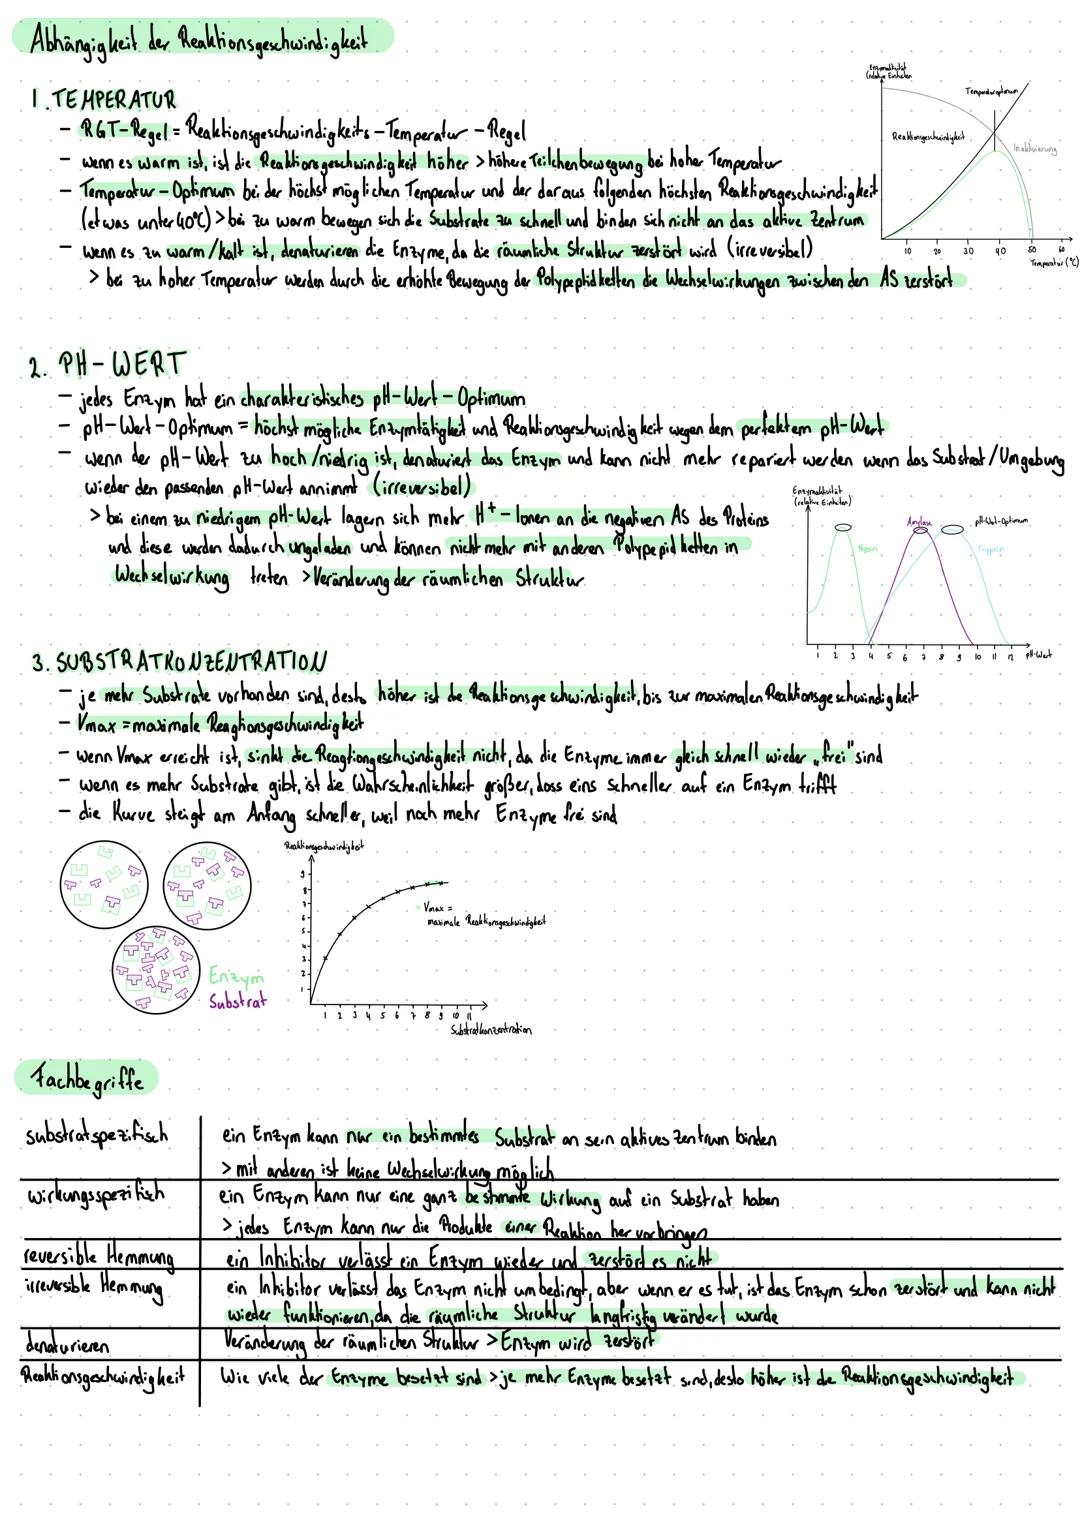 Abhängigkeit der Reaktionsgeschwindigkeit
1. TEMPERATUR
- RGT-Regel = Reaktionsgeschwindigkeits-Temperatur-Regel
- wenn es warm ist, ist die Reaktionsgeschwindigkeit höher > höhere Teilchenbewegung bei hoher Temperatur
- Temperatur-Optimum bei der höchst möglichen Temperatur und der daraus folgenden höchsten Reaktionsgeschwindigkeit
(etwas unter 40°C) > bei zu warm bewegen sich die Substrate zu schnell und binden sich nicht an das aktive Zentrum
- wenn es zu warm/kalt ist, denaturieren die Enzyme, da die räumliche Struktur zerstört wird (irreversibel)
> bei zu hoher Temperatur werden durch die erhöhte Bewegung der Polypeptidketten die Wechselwirkungen zwischen den AS zerstört
Enzymaktivität
(relative Einheiten
Temperaturoptimum
Reaktionsgeschwindigkeit
Inaktivierung
10 20 30 40 50 60
Temperatur (°C)
2. PH-WERT
- jedes Enzym hat ein charakteristisches pH-Wert-Optimum
- pH-Wert-Optimum = höchst mögliche Enzymtätigkeit und Reaktionsgeschwindigkeit wegen dem perfektem pH-Wert
- wenn der pH-Wert zu hoch/niedrig ist, denaturiert das Enzym und kann nicht mehr repariert werden wenn das Substrat/Umgebung
wieder den passenden pH-Wert annimmt (irreversibel)
> bei einem zu niedrigem pH-Wert lagern sich mehr H⁺-Ionen an die negativen AS des Proteins
und diese werden dadurch ungeladen und können nicht mehr mit anderen Polypepidketten in
Wechselwirkung treten > Veränderung der räumlichen Struktur
Enzymaktivität
(relative Einheiten)
Pepsin
Amylase
pH-Wert-Optimum
Trypsin
1 2 3 4 5 6 7 8 9 10 11 12 pH-Wert
3. SUBSTRATKONZENTRATION
- je mehr Substrate vorhanden sind, desto höher ist die Reaktionsgeschwindigkeit, bis zur maximalen Reaktionsgeschwindigkeit
- Vmax = maximale Reagtionsgeschwindigkeit
- wenn Vmax erreicht ist, sinkt die Reagtiongeschwindigkeit nicht, da die Enzyme immer gleich schnell wieder „frei" sind
- wenn es mehr Substrate gibt, ist die Wahrscheinlichkeit größer, dass eins schneller auf ein Enzym trifft
- die Kurve steigt am Anfang schneller, weil noch mehr Enzyme frei sind
Enzym
Substrat
Reaktionsgeschwindigkeit
9
8
7
6
5
4
3
2
1
Vmax =
maximale Reaktionsgeschwindigkeit
1 2 3 4 5 6 7 8 9 10 11
Substratkonzentration
Fachbegriffe
substratspezifisch ein Enzym kann nur ein bestimmtes Substrat an sein aktives Zentrum binden
> mit anderen ist keine Wechselwirkung möglich
wirkungsspezifisch ein Enzym kann nur eine ganz bestimmte Wirkung auf ein Substrat haben
> jedes Enzym kann nur die Produkte einer Reaktion hervorbringen
reversible Hemmung ein Inhibitor verlässt ein Enzym wieder und zerstört es nicht
irreversible Hemmung ein Inhibitor verlässt das Enzym nicht umbedingt, aber wenn er es tut, ist das Enzym schon zerstört und kann nicht
wieder funktionieren, da die räumliche Struktur langfristig verändert wurde
denaturieren Veränderung der räumlichen Struktur > Enzym wird zerstört
Reaktionsgeschwindigkeit Wie viele der Enzyme besetzt sind > je mehr Enzyme besetzt sind, desto höher ist die Reaktionsgeschwindigkeit